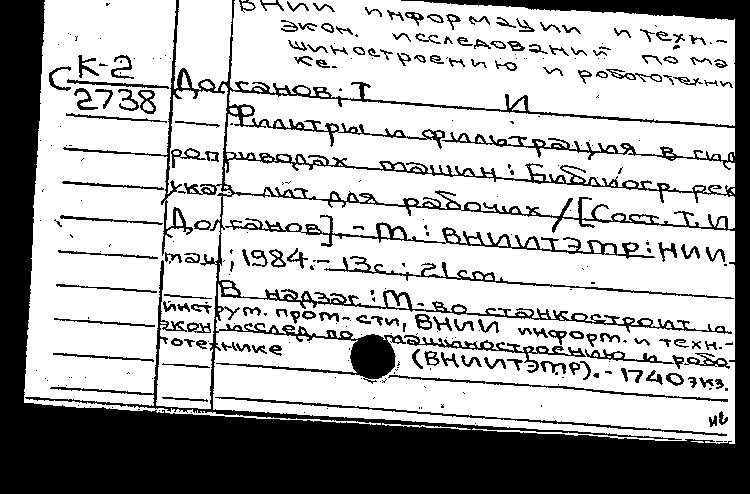 ВНИИ информации и техн.-
экон. исследований по ма
шиностроению и робототехни
ке.
С К-2
2738
Долганов, Т И
Фильтры и фильтрация в гид
роприводах машин : Библиогр. рек
указ. лит. для рабочих / [Сост. Т. И
Долганов]. - М. : ВНИИТЭМР : НИИ
маш, 1984. - 13 с. ; 21 см.
В надзаг : М-во станкостроит и
инструм. пром-сти, ВНИИ информ. и техн.-
экон. исслед. по машиностроению и робо-
тотехнике (ВНИИТЭМР). - 1740 экз.